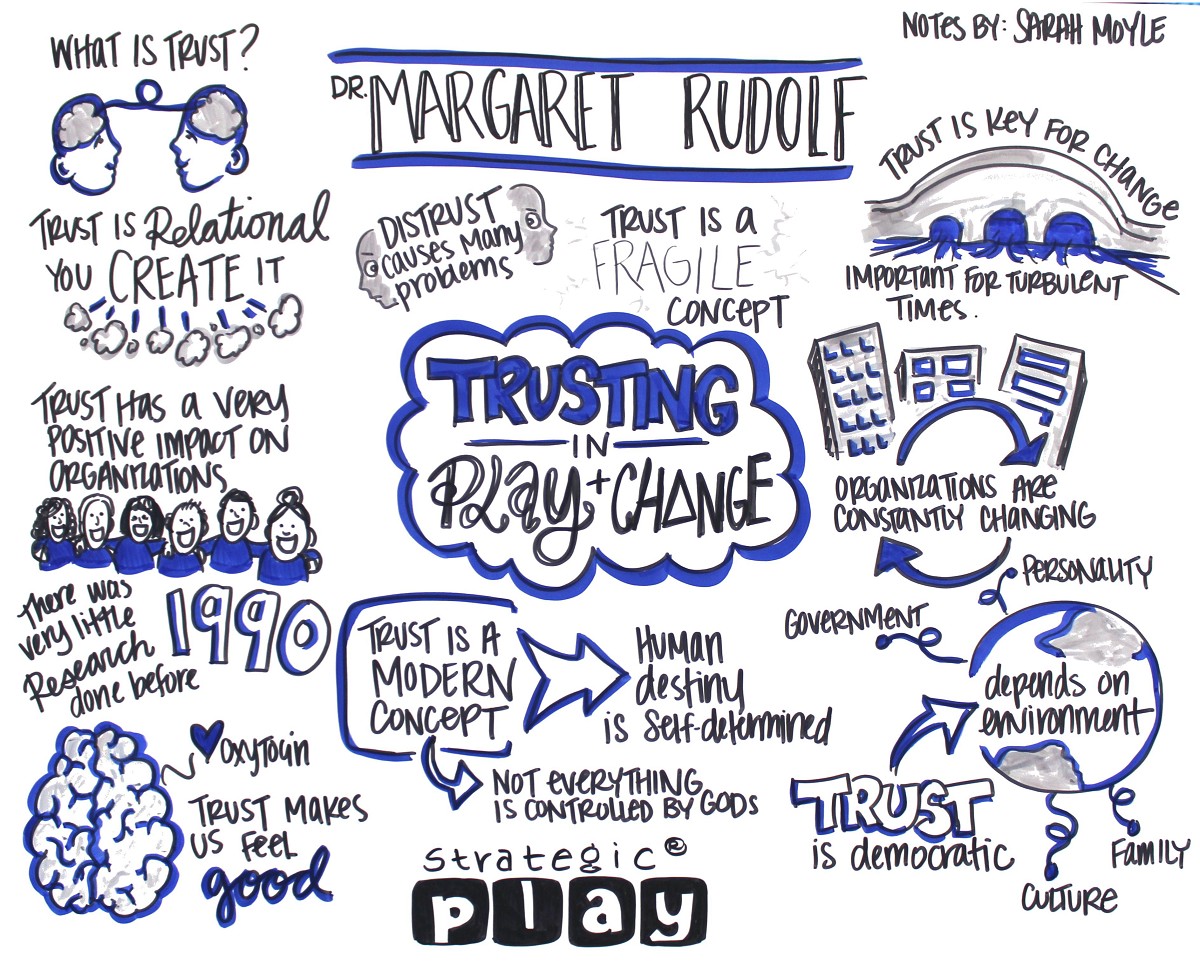 NOTES BY: SARAH MOYLE
DR. MARGARET RUDOLF
WHAT IS TRUST?
TRUST IS Relational
YOU CREATE IT
TRUST HAS a VERY
POSITIVE IMPACT ON
ORGANIZATIONS
There was
very little
Research
done before
1990
OXYTOCIN
TRUST MAKES
US FEEL
good
DISTRUST
causes Many
problems
TRUST IS a
FRAGILE
CONCEPT
TRUSTING
IN
PLay + CHANGE
TRUST IS A
MODERN
CONCEPT
Human
destiny
is Self-determined
NOT EVERYTHING
IS CONTROLLED BY GODS
strategic®
play
TRUST IS KEY FOR CHANGE
IMPORTANT FOR TURBULENT
TIMES.
ORGANIZATIONS ARE
CONSTANTLY CHANGING
PERSONALITY
GOVERNMENT
depends on
environment
TRUST
is democratic
FAMILY
CULTURE